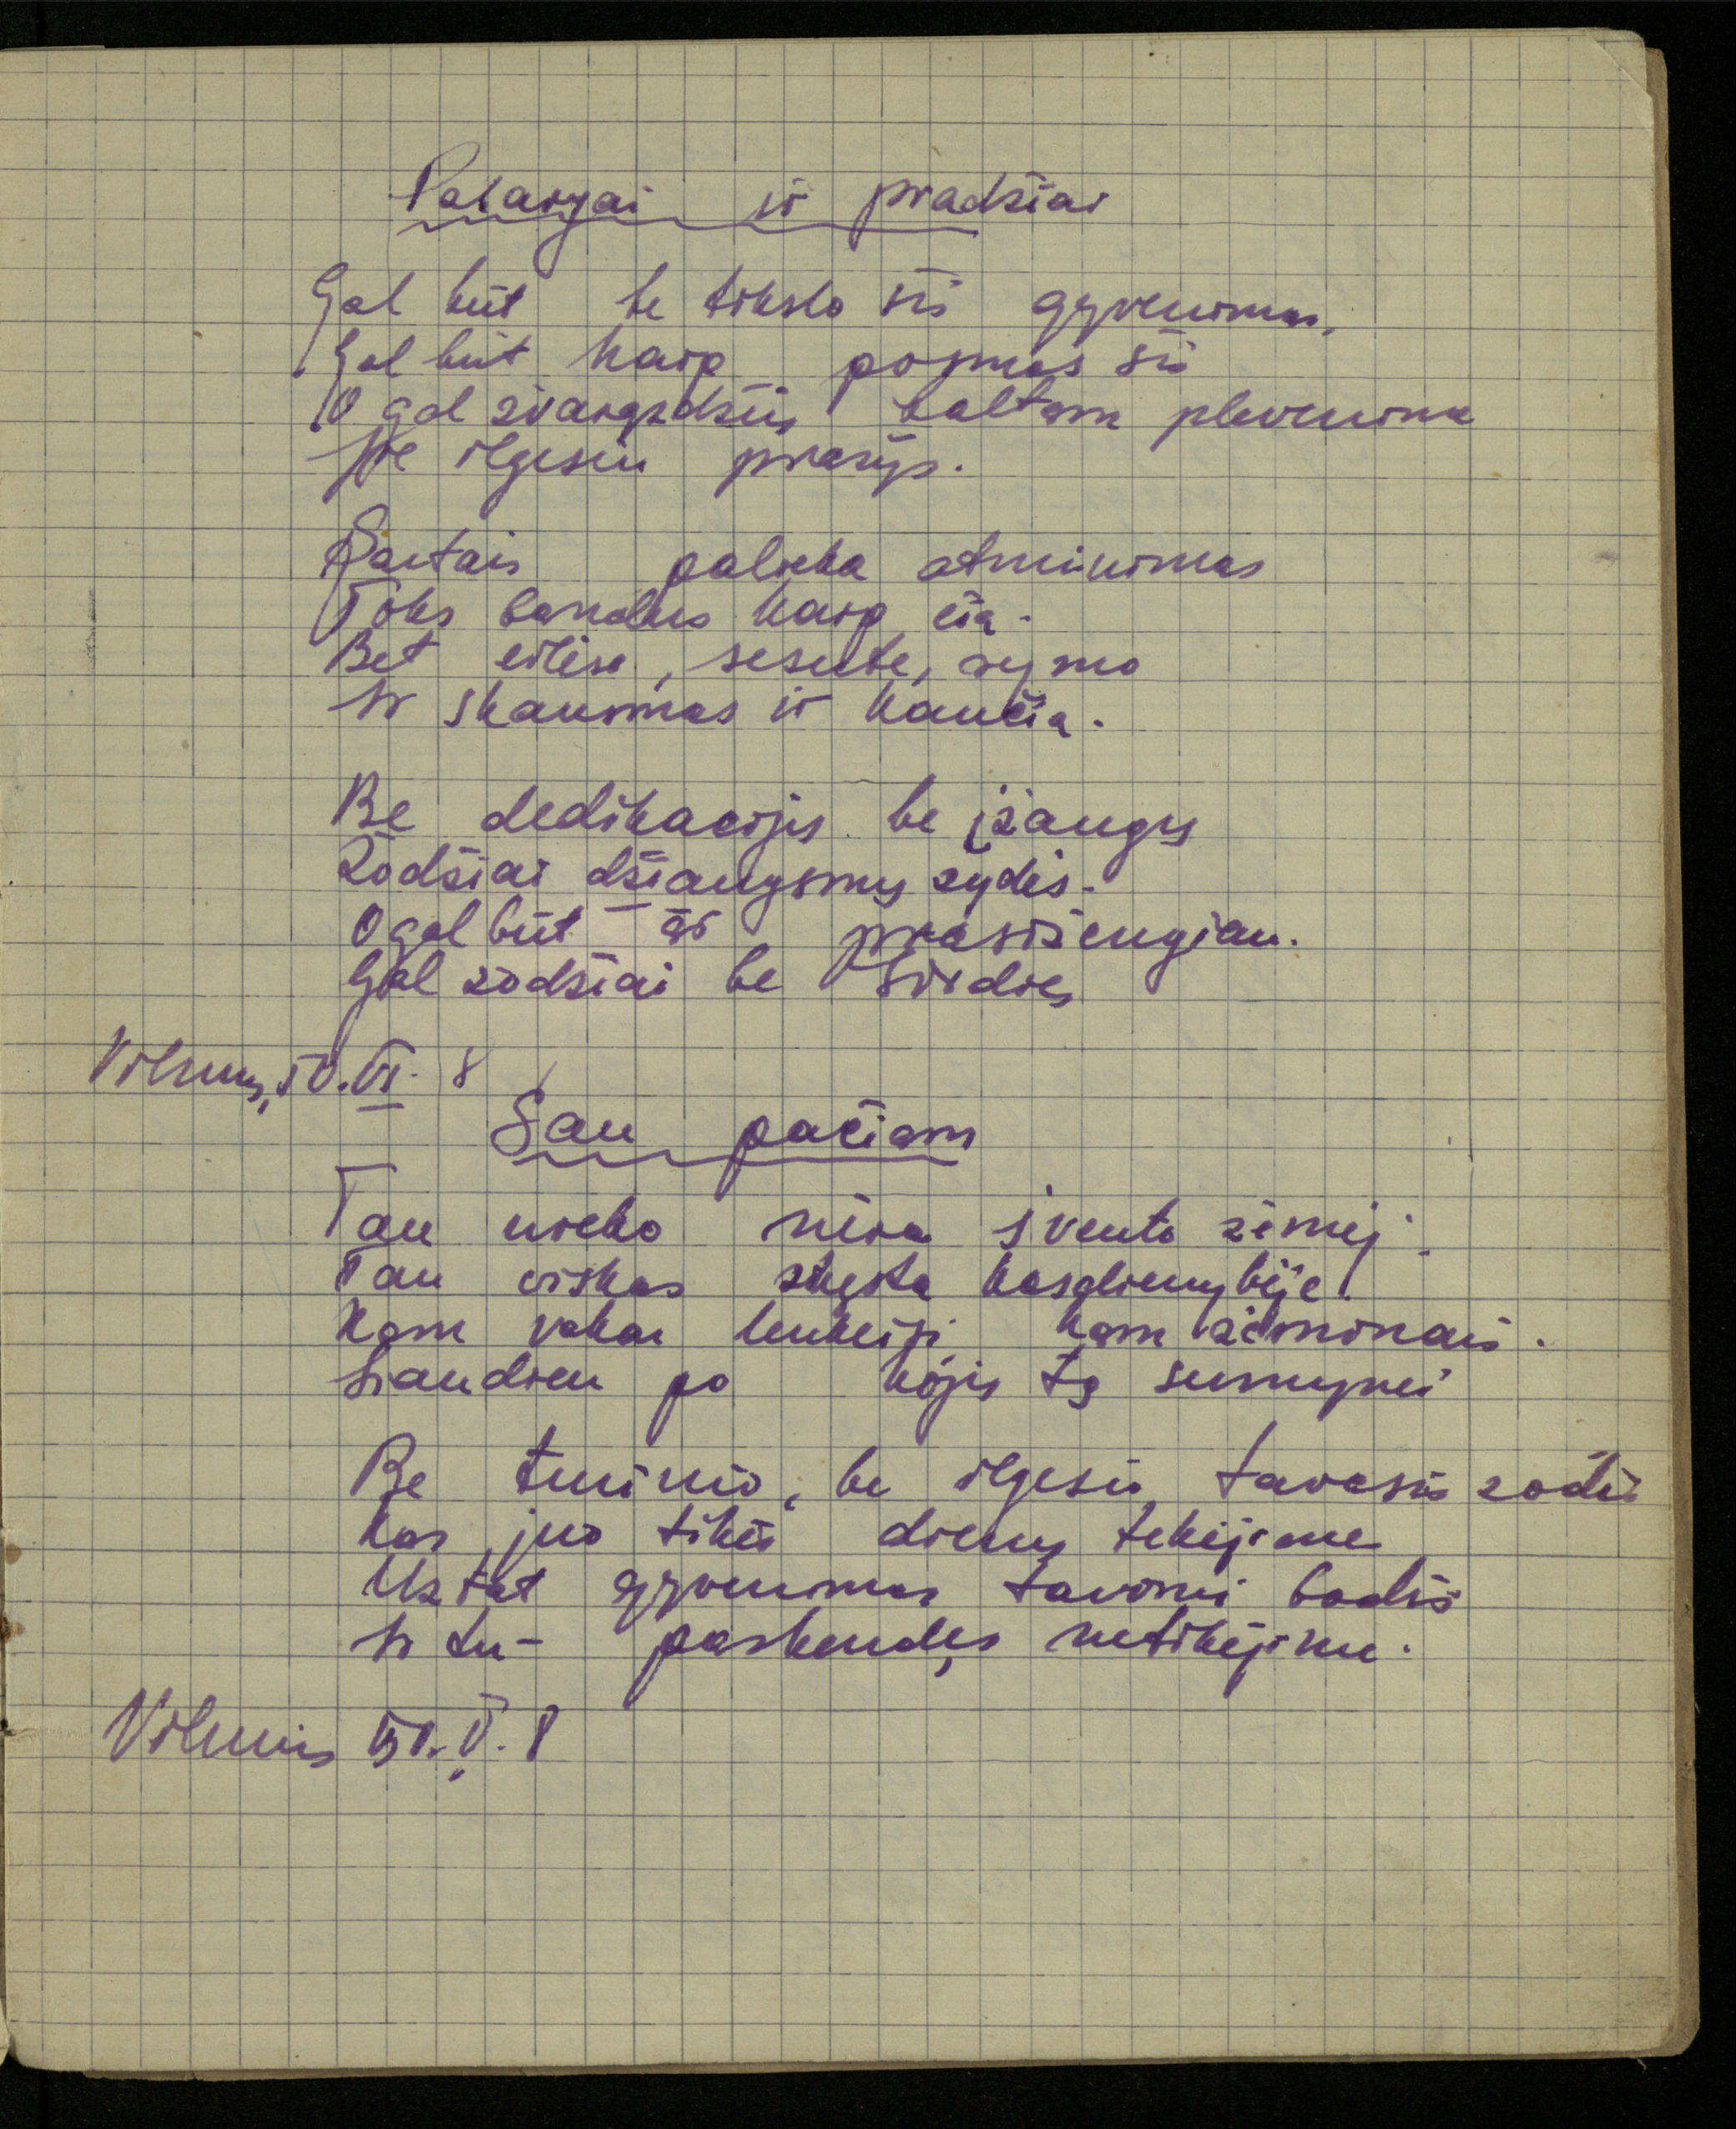 Pabaigai ir pradžiai
Gal būt be tikslo šis gyvenimas,
Gal būt kaip posmas šis
O gal žvaigždžių baltam plevenime
Jie ilgesiu prašys.
Kartais palieka atminimas
Toks bandus kaip čia.
Bet eilėse, sesute, rymo
Ir skausmas ir kančia.
Be dedikacijų be įžangų
Žodžiai džiaugsmų žydės.
O gal būt – aš prasižengiau.
Gal žodžiai be širdies
Vilnius, 50.VI. 8
Sau pačiam
Tau nieko nėra švento žemėj.
Tau viskas skęsta kasdienybėje.
Kam vakar lenkeisi, kam žėminais.
Šiandien po kojų tą sumynei
Be turinio, be ilgesio tavasis žodis
Kas juo tikės dienų tekėjime
Užtat gyvenimas tavimi bodis
Ir tu – paskendęs netikėjime.
Vilnius 50.V. 8